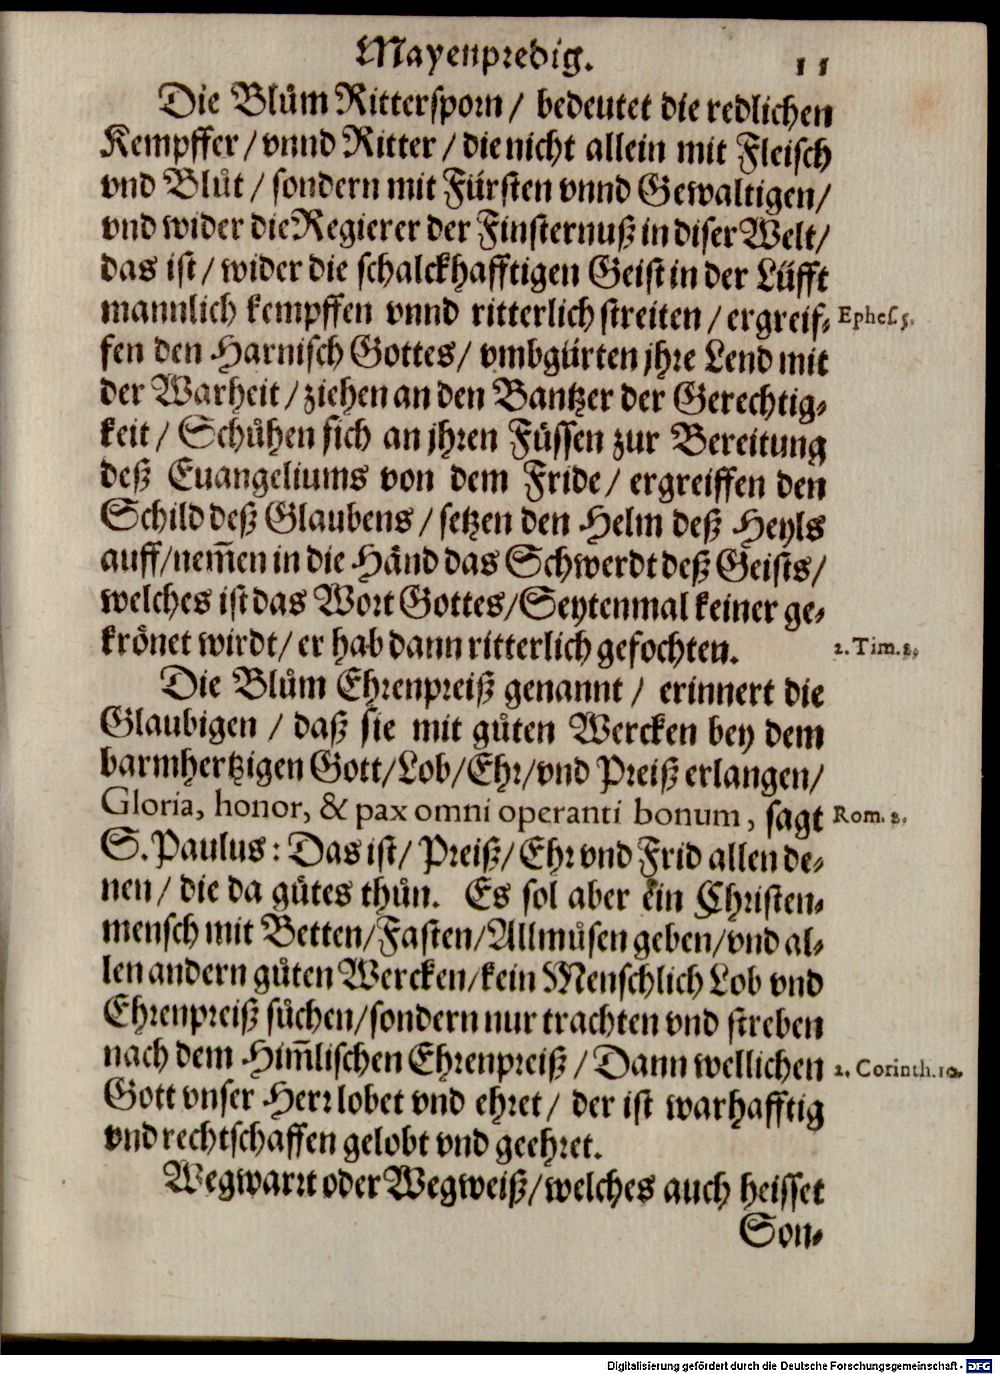 Mayenpredig. 11
Die Blům Rittersporn / bedeutet die redlichen
Kempffer / vnnd Ritter / die nicht allein mit Fleisch
vnd Blůt / sondern mit Fürsten vnnd Gewaltigen /
vnd wider die Regierer der Finsternuß in diser Welt /
das ist / wider die schalckhafftigen Geist in der Lüfft
mannlich kempffen vnnd ritterlich streiten / ergreif- Ephes. 5.
fen den Harnisch Gottes / vmbgürten jhre Lend mit
der Warheit / ziehen an den Bantzer der Gerechtig-
keit / Schůhen sich an jhren Füssen zur Bereitung
deß Euangeliums von dem Fride / ergreiffen den
Schild deß Glaubens / setzen den Helm deß Heyls
auff / nem̃en in die Händ das Schwerdt deß Geists /
welches ist das Wort Gottes / Seytenmal keiner ge-
krönet wirdt / er hab dann ritterlich gefochten. 2. Tim. 2.
Die Blům Ehrenpreiß genannt / erinnert die
Glaubigen / daß sie mit gůten Wercken bey dem
barmhertzigen Gott / Lob / Ehr / vnd Preiß erlangen /
Gloria, honor, & pax omni operanti bonum, sagt Rom. 2.
S. Paulus : Das ist / Preiß / Ehr vnd Frid allen de-
nen / die da gůtes thůn. Es sol aber ein Christen-
mensch mit Betten / Fasten / Allmůsen geben / vnd al-
len andern gůten Wercken / kein Menschlich Lob vnd
Ehrenpreiß sůchen / sondern nur trachten vnd streben
nach dem Him̃lischen Ehrenpreiß / Dann wellichen 2. Corinth. 10.
Gott vnser Herr lobet vnd ehret / der ist warhafftig
vnd rechtschaffen gelobt vnd geehret.
Wegwarrt oder Wegweiß / welches auch heisset
Son-
Digitalisierung gefördert durch die Deutsche Forschungsgemeinschaft - DFG